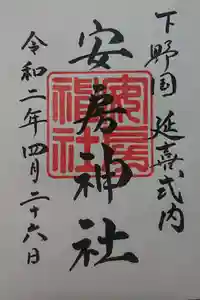 下野国 延喜式内
安房神社
令和二年四月二十六日